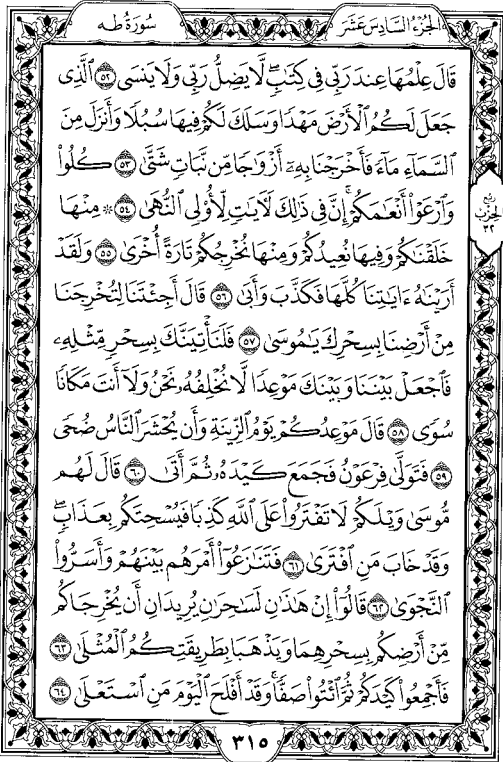 الجزء السادس عشر
سورة طه
قَالَ عِلْمُهَا عِندَ رَبِّي فِي كِتَٰبٖۖ لَّا يَضِلُّ رَبِّي وَلَا يَنسَى ٥٢ ٱلَّذِي
جَعَلَ لَكُمُ ٱلْأَرْضَ مَهْدٗا وَسَلَكَ لَكُمْ فِيهَا سُبُلٗا وَأَنزَلَ مِنَ
ٱلسَّمَآءِ مَآءٗ فَأَخْرَجْنَا بِهِۦٓ أَزْوَٰجٗا مِّن نَّبَاتٖ شَتَّىٰ ٥٣ كُلُوا۟
وَٱرْعَوْا۟ أَنْعَٰمَكُمْۚ إِنَّ فِي ذَٰلِكَ لَأٓيَٰتٖ لِّأُو۟لِي ٱلنُّهَىٰ ٥٤ ۞ مِنْهَا
خَلَقْنَٰكُمْ وَفِيهَا نُعِيدُكُمْ وَمِنْهَا نُخْرِجُكُمْ تَارَةً أُخْرَىٰ ٥٥ وَلَقَدْ
أَرَيْنَٰهُ ءَايَٰتِنَا كُلَّهَا فَكَذَّبَ وَأَبَىٰ ٥٦ قَالَ أَجِئْتَنَا لِتُخْرِجَنَا
مِنْ أَرْضِنَا بِسِحْرِكَ يَٰمُوسَىٰ ٥٧ فَلَنَأْتِيَنَّكَ بِسِحْرٖ مِّثْلِهِۦ
فَٱجْعَلْ بَيْنَنَا وَبَيْنَكَ مَوْعِدٗا لَّا نُخْلِفُهُۥ نَحْنُ وَلَآ أَنتَ مَكَانٗا
سُوٗى ٥٨ قَالَ مَوْعِدُكُمْ يَوْمُ ٱلزِّينَةِ وَأَن يُحْشَرَ ٱلنَّاسُ ضُحٗى
٥٩ فَتَوَلَّىٰ فِرْعَوْنُ فَجَمَعَ كَيْدَهُۥ ثُمَّ أَتَىٰ ٦٠ قَالَ لَهُم
مُّوسَىٰ وَيْلَكُمْ لَا تَفْتَرُوا۟ عَلَى ٱللَّهِ كَذِبٗا فَيُسْحِتَكُم بِعَذَابٖۖ
وَقَدْ خَابَ مَنِ ٱفْتَرَىٰ ٦١ فَتَنَٰزَعُوٓا۟ أَمْرَهُم بَيْنَهُمْ وَأَسَرُّوا۟
ٱلنَّجْوَىٰ ٦٢ قَالُوٓا۟ إِنْ هَٰذَٰنِ لَسَٰحِرَٰنِ يُرِيدَانِ أَن يُخْرِجَاكُم
مِّنْ أَرْضِكُم بِسِحْرِهِمَا وَيَذْهَبَا بِطَرِيقَتِكُمُ ٱلْمُثْلَىٰ ٦٣
فَأَجْمِعُوا۟ كَيْدَكُمْ ثُمَّ ٱئْتُوا۟ صَفّٗاۚ وَقَدْ أَفْلَحَ ٱلْيَوْمَ مَنِ ٱسْتَعْلَىٰ ٦٤
ربع
حزب
٣٢
٣١٥